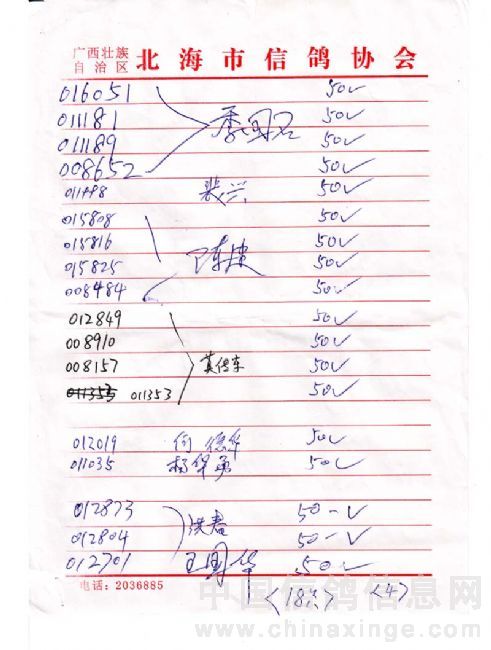 广西壮族
自治区
北海市信鸽协会
016051 50✓
011181 50✓
011189 50✓
008652 50✓
011998 50✓
015808 50✓
015816 50✓
015825 陈 50✓
008484 50✓
012849 50✓
008910 50✓
008157 莫传东 50✓
011353 011353 50✓
012019 何德华 50✓
011035 杨华勇 50✓
012873 洪春 50-✓
012804 50-✓
012701 王国华 50✓
电话:2036885
<18只> <4>
中国信鸽信息网
www.chinaxinge.com